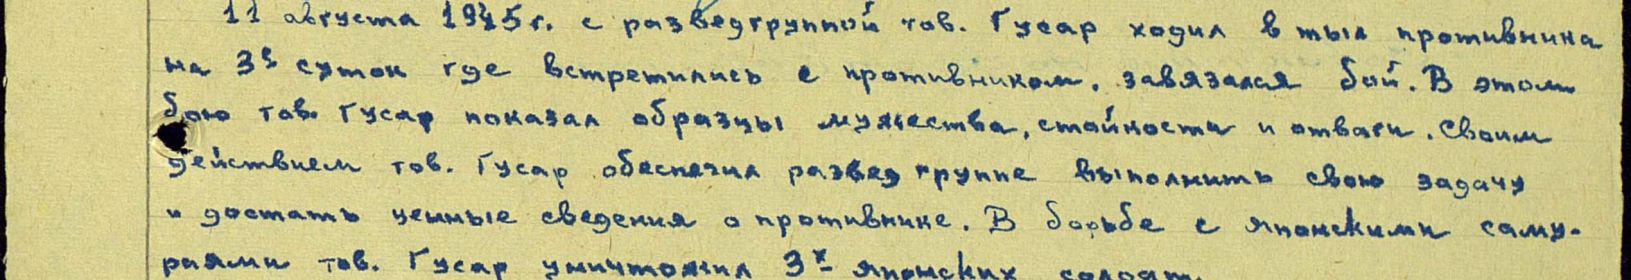 11 августа 1945 г. с разведгруппой тов. Гусар ходил в тыл противника
на 3е суток где встретились с противником. завязался бой. В этом
бою тов. Гусар показал образцы мужества, стойкости и отваги. Своим
действием тов. Гусар обеспечил развед группе выполнить свою задачу
и достать ценные сведения о противнике. В борьбе с японскими саму-
раями тов. Гусар уничтожил 3х японских солдат.